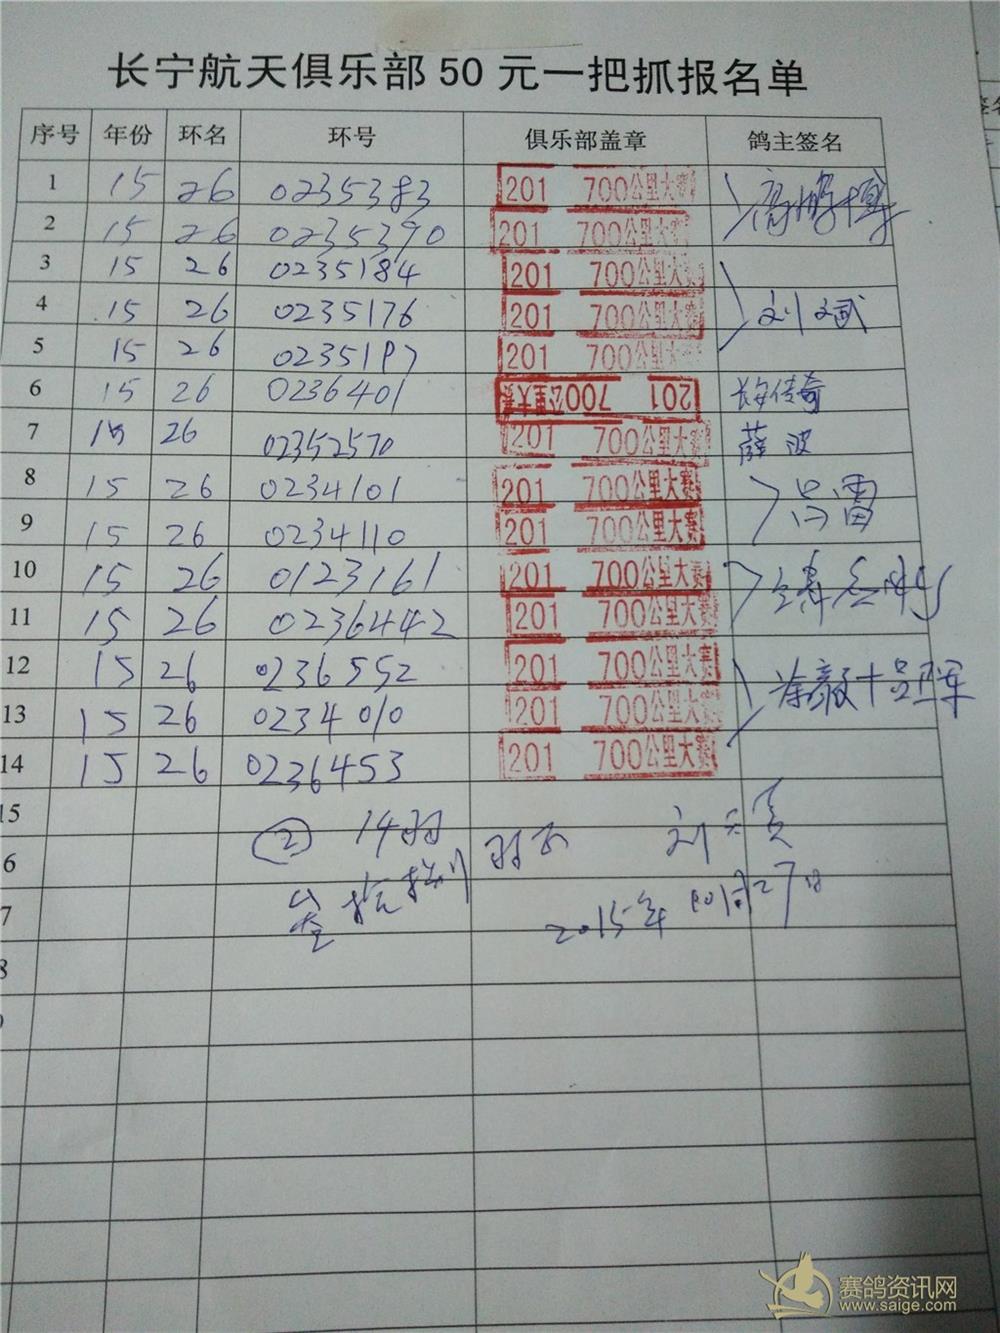 长宁航天俱乐部50元一把抓报名单
序号 年份 环名 环号 俱乐部盖章 鸽主签名
1 15 26 0235383 201 700公里大赛
2 15 26 0235390 201 700公里大赛
3 15 26 0235184 201 700公里大赛
4 15 26 0235176 201 700公里大赛 刘斌
5 15 26 0235197 201 700公里大赛
6 15 26 0236401 201 700公里大赛 长安传奇
7 15 26 02352570 201 700公里大赛 薛波
8 15 26 0234101 201 700公里大赛 吕雷
9 15 26 0234110 201 700公里大赛
10 15 26 0123161 201 700公里大赛
11 15 26 0236442 201 700公里大赛
12 15 26 0236552 201 700公里大赛
13 15 26 0234010 201 700公里大赛
14 15 26 0236453 201 700公里大赛
15
6
7
8
② 14羽 刘
2015年10月27日
签名
赛鸽资讯网
www.saige.com